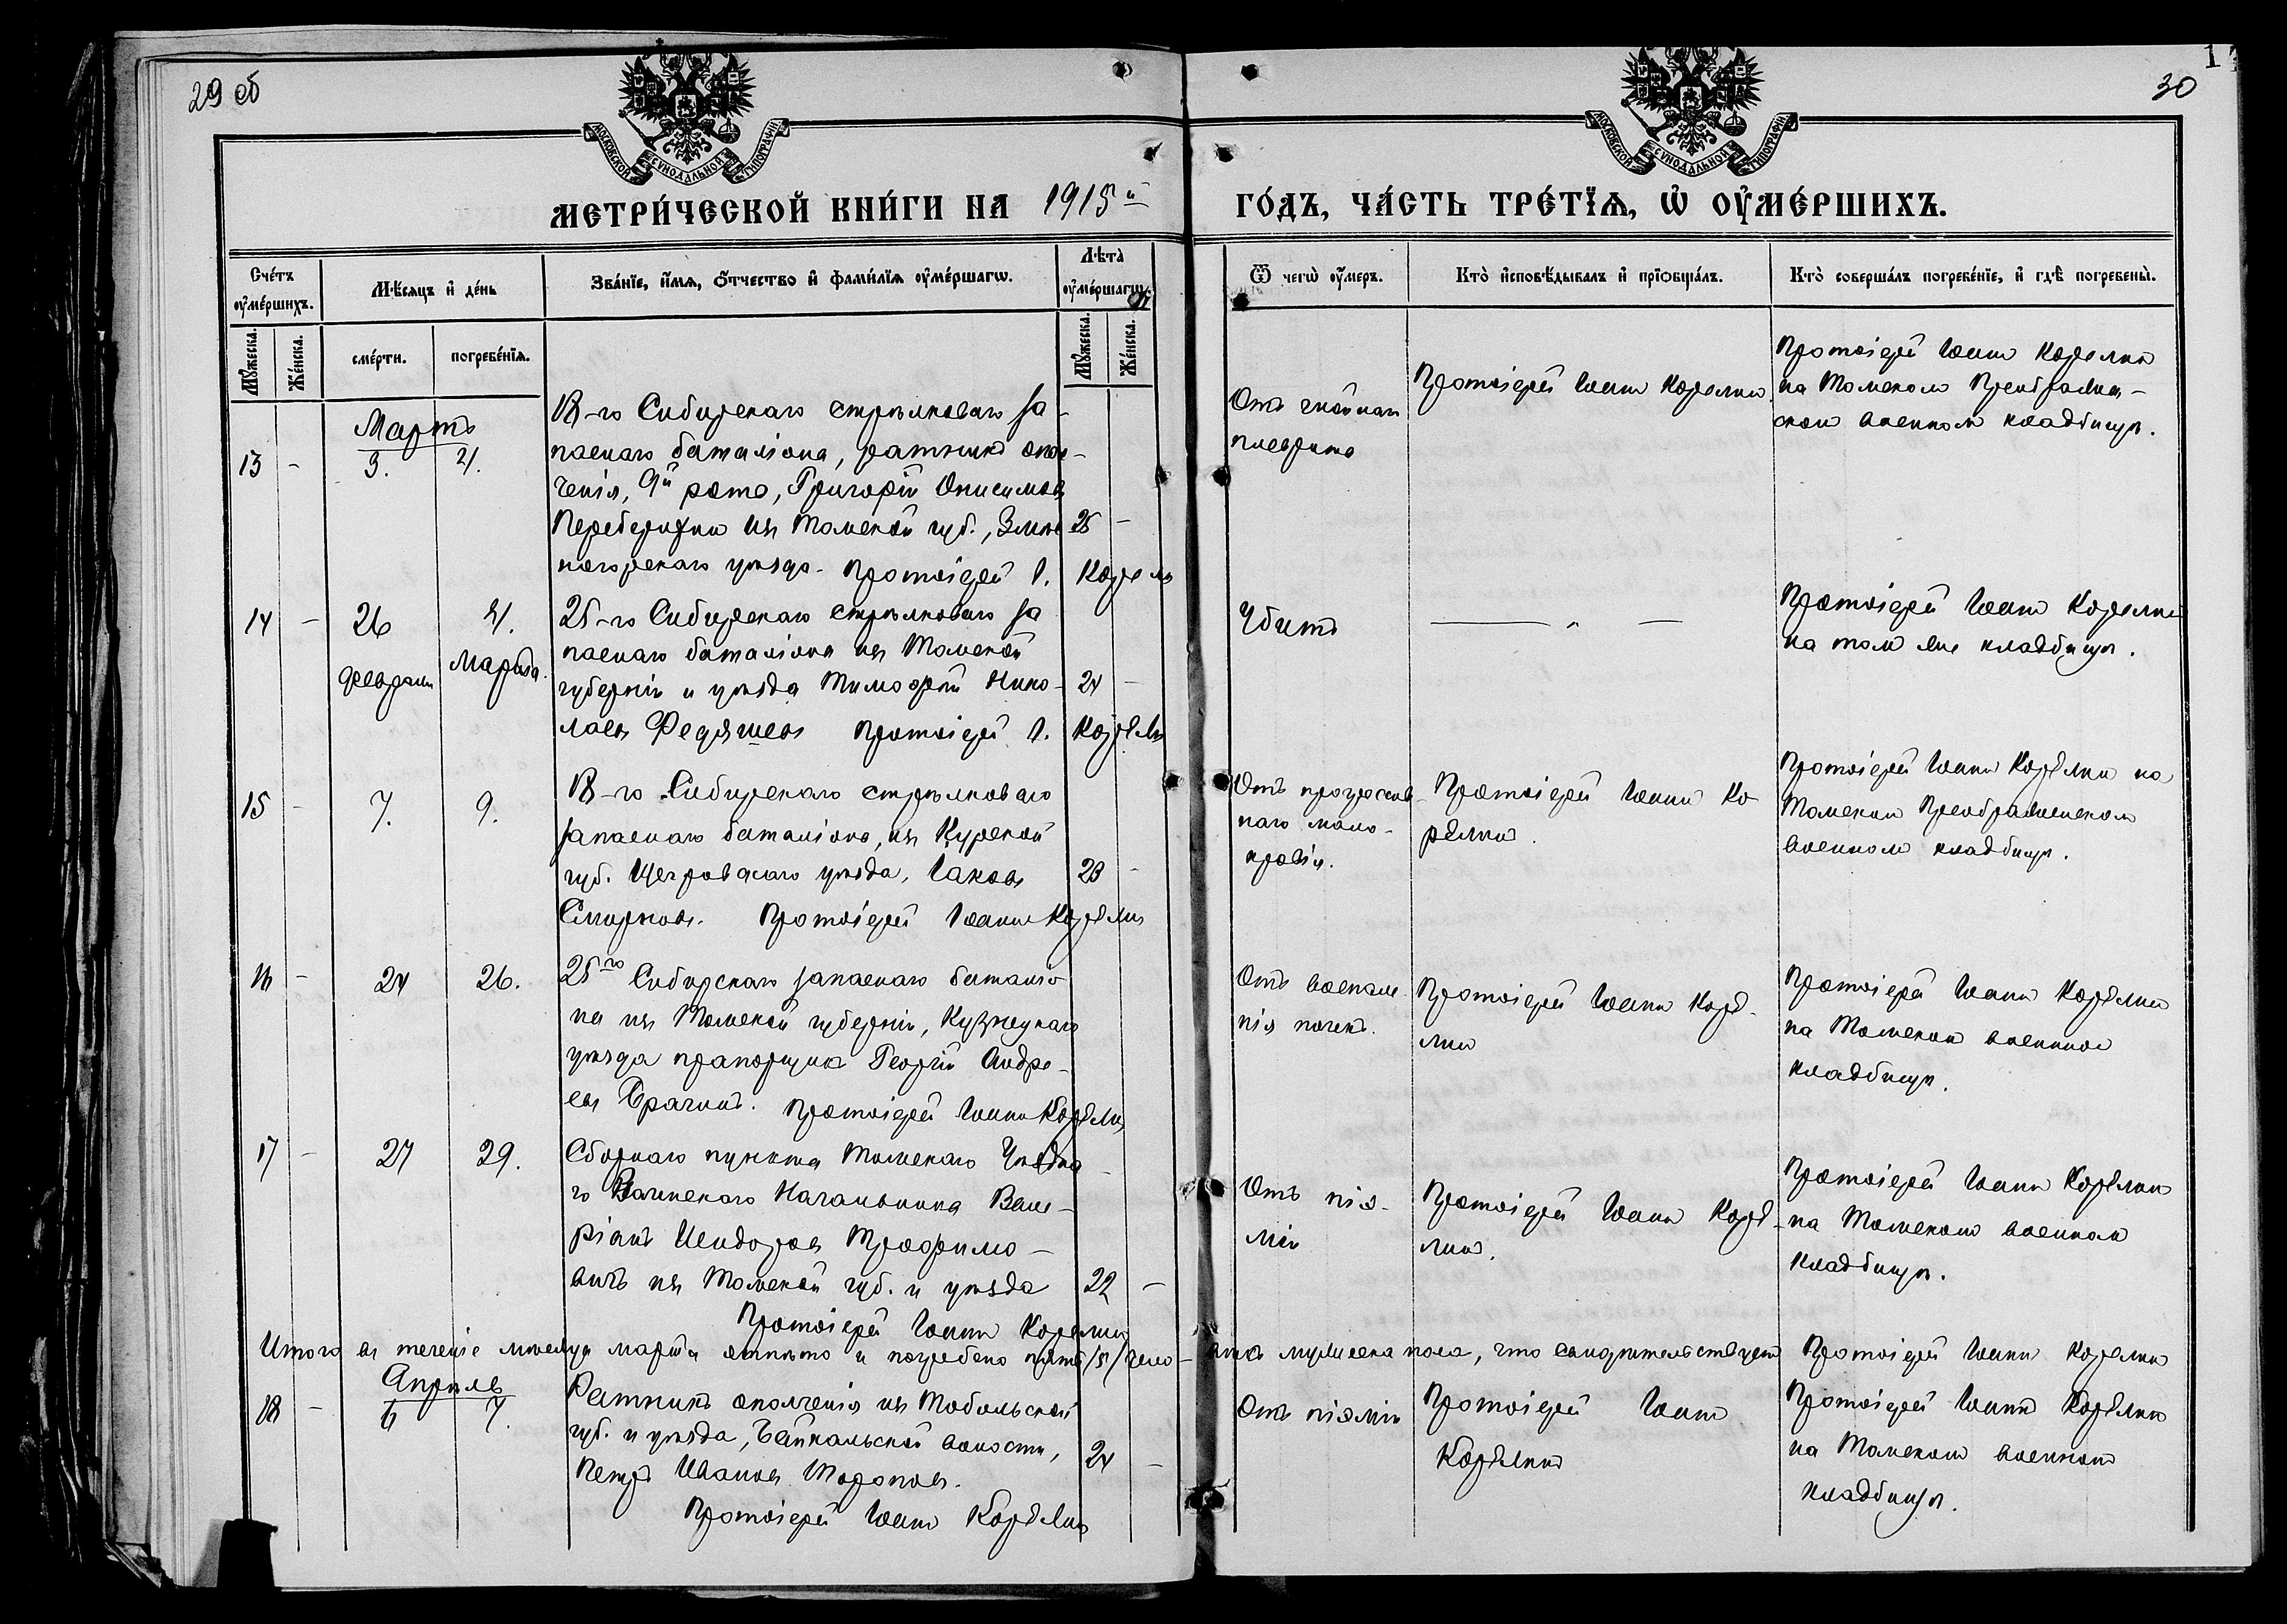 29 об
30
МОСКОВСКОЙ СѴНОДАЛЬНОЙ ТИПОГРАФІИ
МОСКОВСКОЙ СѴНОДАЛЬНОЙ ТИПОГРАФІИ
МЕТРИ́ЧЕСКОЙ КНИ́ГИ НА 1915й ГО́ДЪ, ЧА́СТЬ ТРЕ́ТЇѦ, Ѡ ОУ҆МЕ́РШИХЪ.
Сче́тъ оу҆ме́ршихъ.
Мꙋ́жеска.
Же́нска.
Мѣ́сѧцъ и҆ де́нь
сме́рти.
погребе́нїѧ.
Зва́нїе, и҆́мѧ, о҆́тчество и҆ фами́лїѧ оу҆ме́ршагѡ.
Лѣ́та оу҆ме́ршагѡ.
Мꙋ́жеска.
Же́нска.
Ѿ чегѡ̀ оу҆́меръ.
Кто̀ и҆сповѣ́дывалъ и҆ прїѻбща́лъ.
Кто̀ соверша́лъ погребе́нїе, и҆ гдѣ̀ погребены̀.
Мартъ
13 - 3. 4.
18-го Сибирскаго стрѣлковаго за-
паснаго баталіона, ратникъ опол-
ченія, 9й рота, Григорій Онисимовъ
Переберихин изъ Томской губ., Змѣи-
ногорскаго уѣзда. Протоіерей І. Корелин
25 -
Отъ гнойнаго
плеврита
Протоіерей Іоаннъ Корелинъ
Протоіерей Іоаннъ Корелинъ
на Томском Преображен-
ском военном кладбищѣ.
14 - 26 4.
февраля Марта.
25-го Сибирскаго стрѣлковаго за
паснаго баталіона изъ Томской
губерніи и уѣзда Тимофей Нико-
лаевъ Федяшевъ Протоіерей І. Корелин
24 -
Убитъ
— „ —
Протоіерей Іоаннъ Корелинъ
на том же кладбищѣ.
15 - 7. 9.
18-го Сибирскаго стрѣлковаго
запаснаго баталіона, изъ Курской
губ. Щегровскаго уѣзда, Іаковъ
Смирновъ. Протоіерей Іоаннъ Корелин
23 -
Отъ прогрессив-
наго мало-
кровія.
Протоіерей Іоаннъ Ко-
релинъ.
Протоіерей Іоаннъ Корелинъ на
Томском Преображенском
военном кладбищѣ.
16 - 24 26.
25го Сибирскаго запаснаго баталіо-
на изъ Томской губерніи, Кузнецкаго
уѣзда прапорщик Георгій Андре-
евъ Брагинъ. Протоіерей Іоаннъ Корелин
Отъ воспале-
нія почекъ.
Протоіерей Іоаннъ Коре-
линъ
Протоіерей Іоаннъ Корелинъ
на Томском военном
кладбищѣ.
17 - 27 29.
Сборнаго пункта Томскаго Уѣздна-
го Воинскаго Начальника Вале-
ріанъ Исидоровъ Трофимо-
вичъ изъ Томской губ. и уѣзда
Протоіерей Іоаннъ Корелин
22 -
Отъ піэ-
міи
Протоіерей Іоаннъ Коре-
линъ.
Протоіерей Іоаннъ Корелинъ
на Томском военном
кладбищѣ.
Итого въ теченіе мѣсяца марта отпѣто и погребено пять /5/ чело- вѣкъ мужеска пола, что свидѣтельствует Протоіерей Іоаннъ Корелин
Апрѣль
18 - 6 7.
Ратникъ ополченія изъ Тобольской
губ. и уѣзда, Байкальской волости,
Петръ Ивановъ Торопов.
Протоіерей Іоаннъ Корелин
24 -
Отъ піэміи
Протоіерей Іоаннъ
Корелинъ
Протоіерей Іоаннъ Корелинъ
на Томском военном
кладбищѣ.